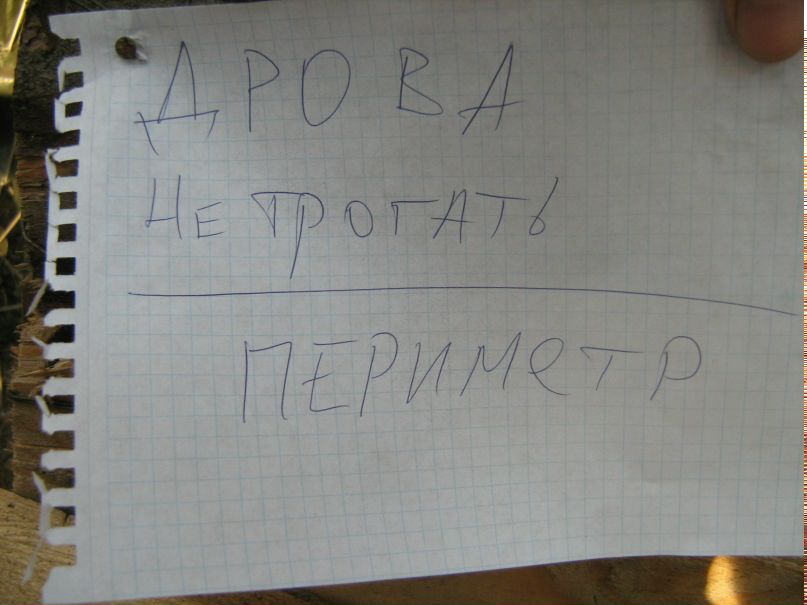 ДРОВА
Не трогать
ПЕРИМеТР